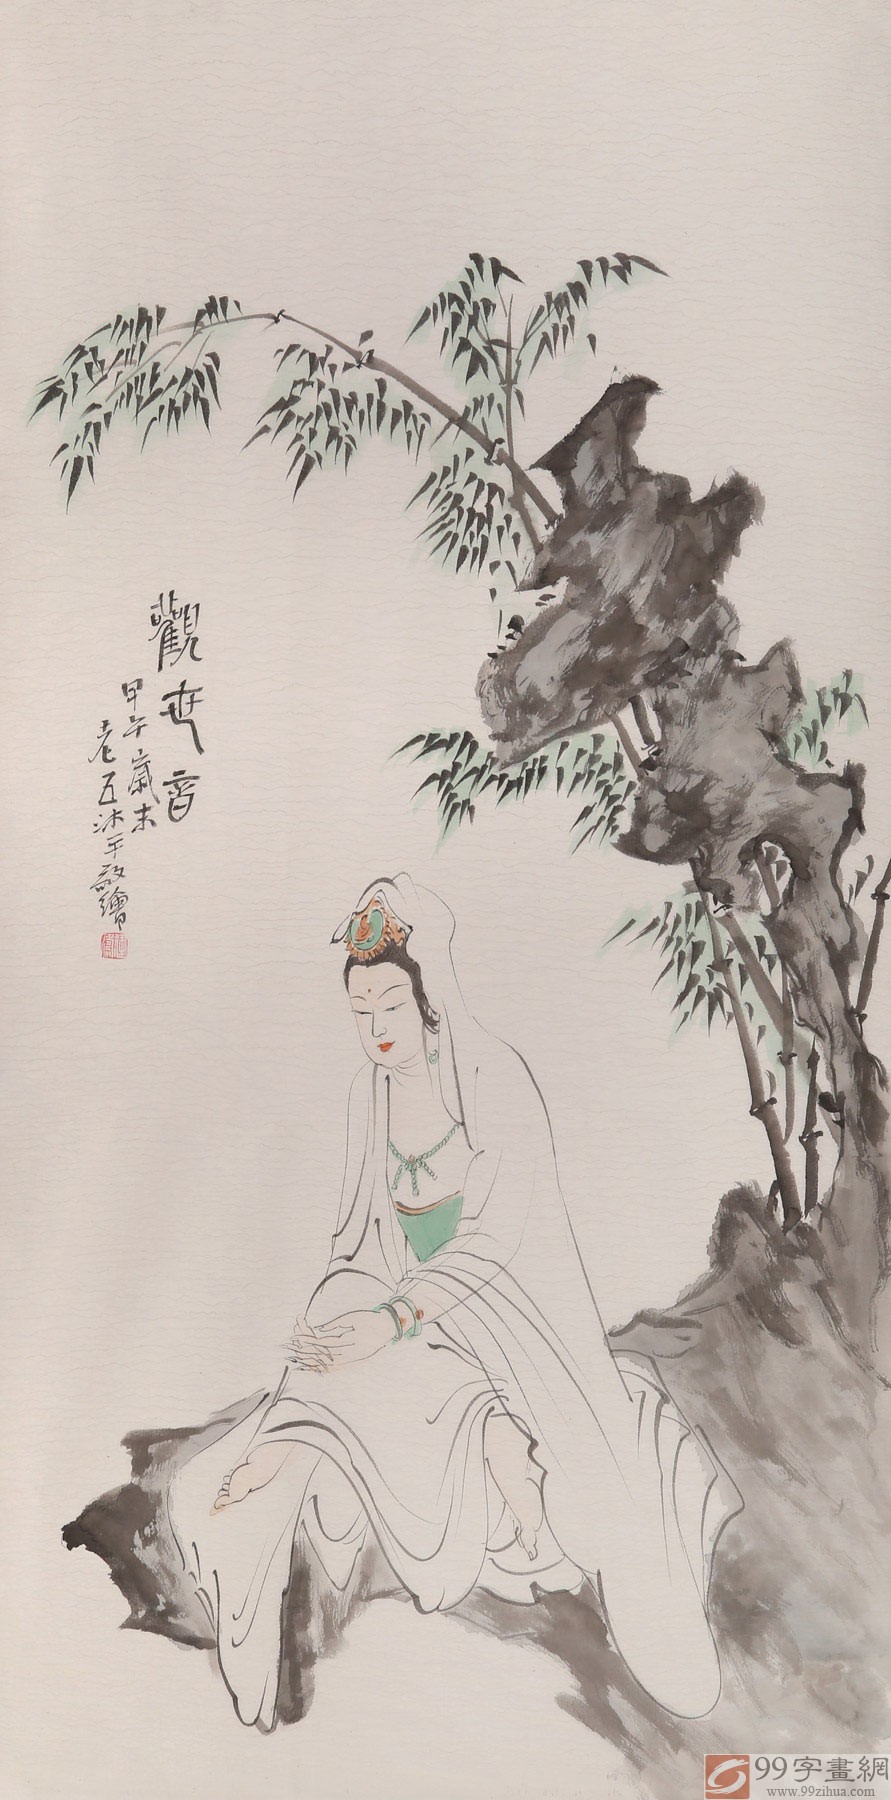 觀世音
甲午歲末
老五沐平敬繪
99字畫網
www.99zihua.com